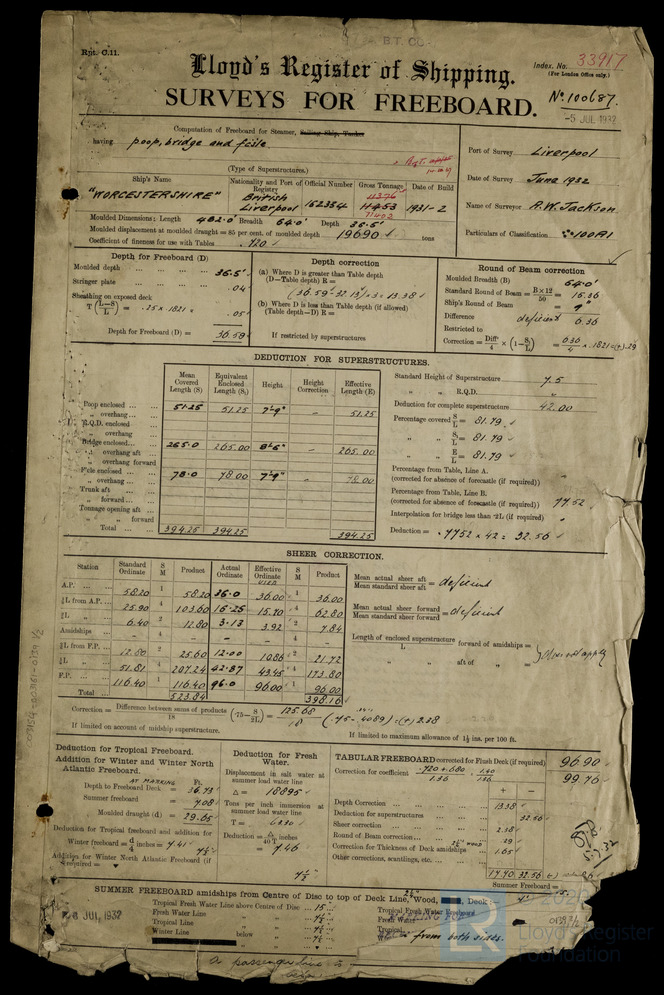 B.T. Co
Rpt. C.11.
Index. No. 33917
(For London Office only.)
Lloyd's Register of Shipping.
SURVEYS FOR FREEBOARD.
No. 100687.
-5 JUL 1932
Computation of Freeboard for Steamer, Sailing Ship, Tanker
having poop, bridge and fcsle
(Type of Superstructures.)
Port of Survey Liverpool
Date of Survey June 1932
Name of Surveyor R.W. Jackson
Particulars of Classification 100A1
Ship's Name Nationality and Port of Registry Official Number Gross Tonnage Date of Build
"WORCESTERSHIRE" British Liverpool 162334 11453 11402 1931-2
Moulded Dimensions: Length 482.0 Breadth 64.0 Depth 36.5
Moulded displacement at moulded draught = 85 per cent. of moulded depth 19690 tons
Coefficient of fineness for use with Tables .720
Depth for Freeboard (D)
Moulded depth 36.5
Stringer plate .04
Sheathing on exposed deck
T (L-S/L) = .25 x .1821 = .05
Depth for Freeboard (D) = 36.59
Depth correction
(a) Where D is greater than Table depth
(D—Table depth) R =
(36.59-32.13) x 3 = 13.38
(b) Where D is less than Table depth (if allowed)
(Table depth—D) R =
If restricted by superstructures
Round of Beam correction
Moulded Breadth (B) 64.0
Standard Round of Beam = B×12/50 = 15.36
Ship's Round of Beam = 9"
Difference deficient 6.36
Restricted to
Correction = Diff/4 × (1-S/L) = 6.36/4 x .1821 = (+) .29
DEDUCTION FOR SUPERSTRUCTURES.
Mean Covered Length (S) Equivalent Enclosed Length (S₁) Height Height Correction Effective Length (E)
Poop enclosed 51.25 51.25 7'-9" - 51.25
„ overhang
R.Q.D. enclosed
„ overhang
Bridge enclosed 265.0 265.00 8'-6" - 265.00
„ overhang aft
„ overhang forward
F'cle enclosed 78.0 78.00 7'-9" - 78.00
„ overhang
Trunk aft
„ forward
Tonnage opening aft
„ forward
Total 394.25 394.25 394.25
Standard Height of Superstructure 7.5
„ „ R.Q.D.
Deduction for complete superstructure 42.00
Percentage covered S/L = 81.79
„ S₁/L = 81.79
„ E/L = 81.79
Percentage from Table, Line A.
(corrected for absence of forecastle (if required))
Percentage from Table, Line B. 77.52
(corrected for absence of forecastle (if required))
Interpolation for bridge less than ·2L (if required)
Deduction = .7752 x 42 = 32.56
SHEER CORRECTION.
Station Standard Ordinate S M Product Actual Ordinate Effective Ordinate S M Product
A.P. 58.20 1 58.20 36.0 36.00 1 36.00
⅙L from A.P. 25.90 4 103.60 16.25 15.70 4 62.80
⅓L „ 6.40 2 12.80 3.13 3.92 2 7.84
Amidships - 4 - - - 4 -
⅓L from F.P. 12.80 2 25.60 12.00 10.86 2 21.72
⅙L „ 51.81 4 207.24 42.87 43.45 4 173.80
F.P. 116.40 1 116.40 96.0 96.00 1 96.00
Total 523.84 398.16
Mean actual sheer aft / Mean standard sheer aft = deficient
Mean actual sheer forward / Mean standard sheer forward = deficient
Length of enclosed superstructure / L forward of amidships =
„ „ aft of „ =
} does not apply
Correction = Difference between sums of products / 18 (·75-S/2L) = 125.68/18 (.75-.4089) = (+) 2.38
If limited on account of midship superstructure.
If limited to maximum allowance of 1½ ins. per 100 ft.
Deduction for Tropical Freeboard.
Addition for Winter and Winter North Atlantic Freeboard.
AT MARKING Ft.
Depth to Freeboard Deck = 36.73
Summer freeboard = 7.08
Moulded draught (d) = 29.65
Deduction for Tropical freeboard and addition for
Winter freeboard = d/4 inches = 7.41 7½"
Addition for Winter North Atlantic Freeboard (if required) =
Deduction for Fresh Water.
Displacement in salt water at summer load water line
Δ = 18895
Tons per inch immersion at summer load water line
T =
Deduction = Δ/40 T inches
= 7.46
7½"
TABULAR FREEBOARD corrected for Flush Deck (if required) 96.90
Correction for coefficient .720+.680/1.36 1.40/1.36 99.76
+ -
Depth Correction 13.38
Deduction for superstructures 32.56
Sheer correction 2.38
Round of Beam correction .29
Correction for Thickness of Deck amidships 1.65
Other corrections, scantlings, etc.
17.70 32.56
Summer Freeboard =
SUMMER FREEBOARD amidships from Centre of Disc to top of Deck Line, Wood, Deck
Tropical Fresh Water Line above Centre of Disc 15
Fresh Water Line „ 7½
Tropical Line „ 7½
Winter Line below „ 7½
Tropical Fresh Water Freeboard
Fresh Water
Tropical
from both sides.
JUL 1932
a passenger line is
Lloyd's Register
Foundation